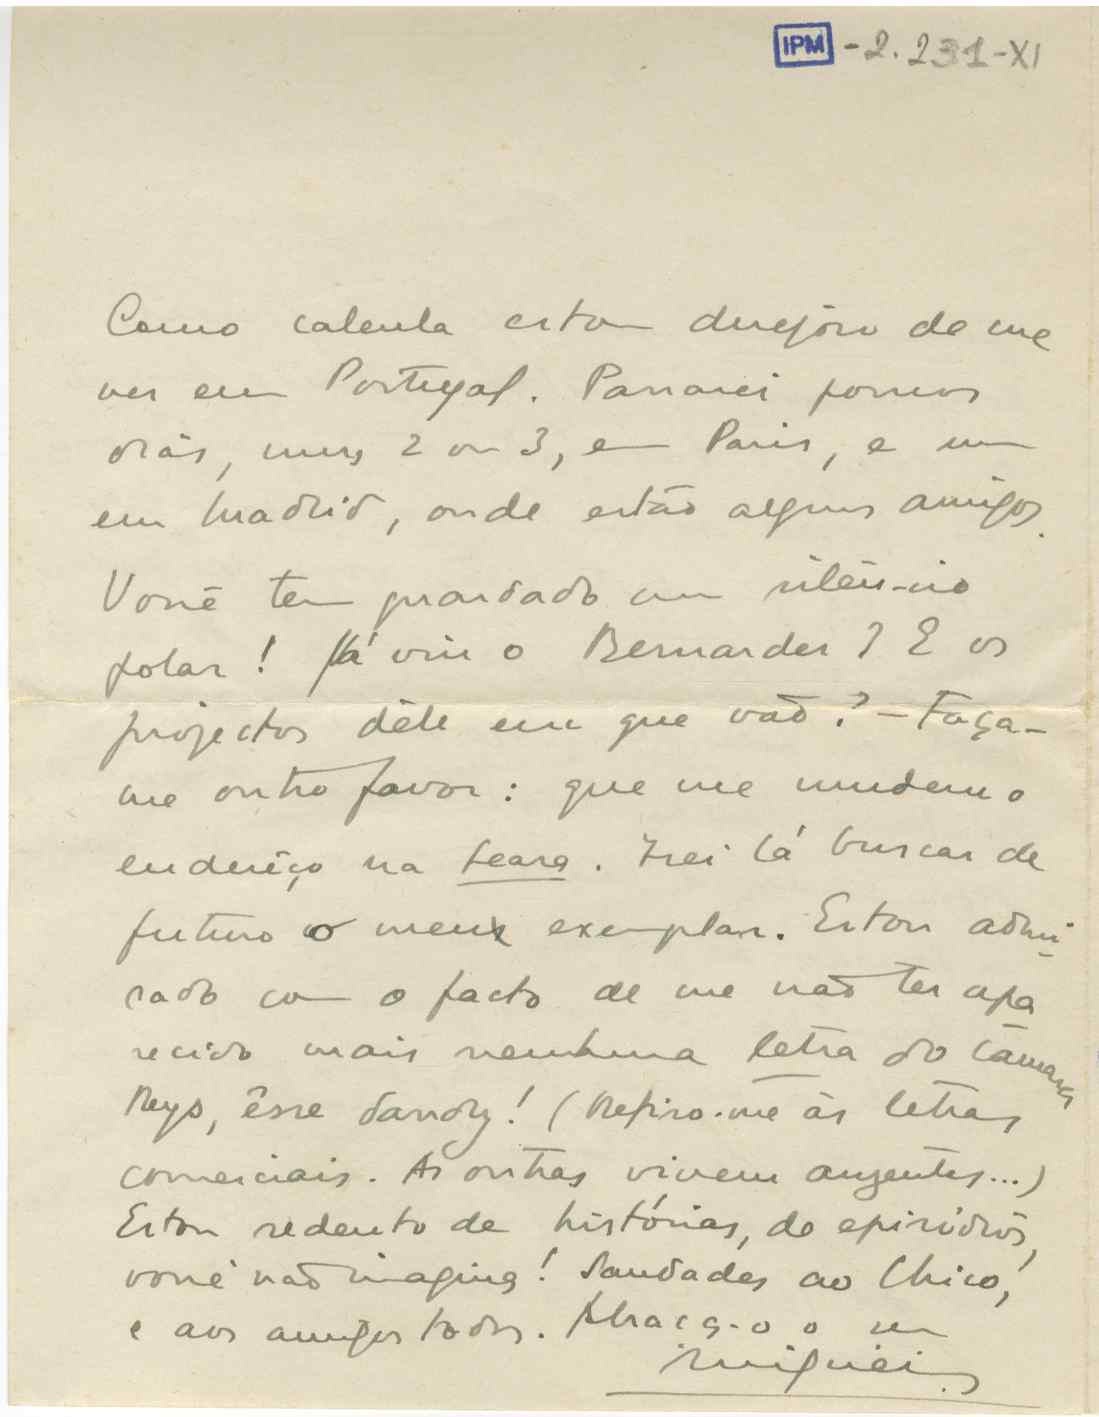 IPM - 2.231-XI
Como calcula estou desejôso de me
ver em Portugal. Passarei poucos
dias, uns 2 ou 3, em Paris, e um
em Madrid, onde estão alguns amigos.
Você tem guardado um silêncio
polar! Já viu o Bernardes? E os
projectos dêle em que vão? - Faça-
me outro favor: que me mudem o
enderêço na Seara. Irei lá buscar de
futuro o meu exemplar. Estou admi-
rado com o facto de me não ter apa
recido mais nenhuma letra do Câmara
Reys, êsse dandy! (Refiro-me às letras
comerciais. As outras vivem ausentes...)
Estou sedento de histórias, de episódios,
você não imagina! Saudades ao Chico,
e aos amigos todos. Abraça-o o seu
Miguéis